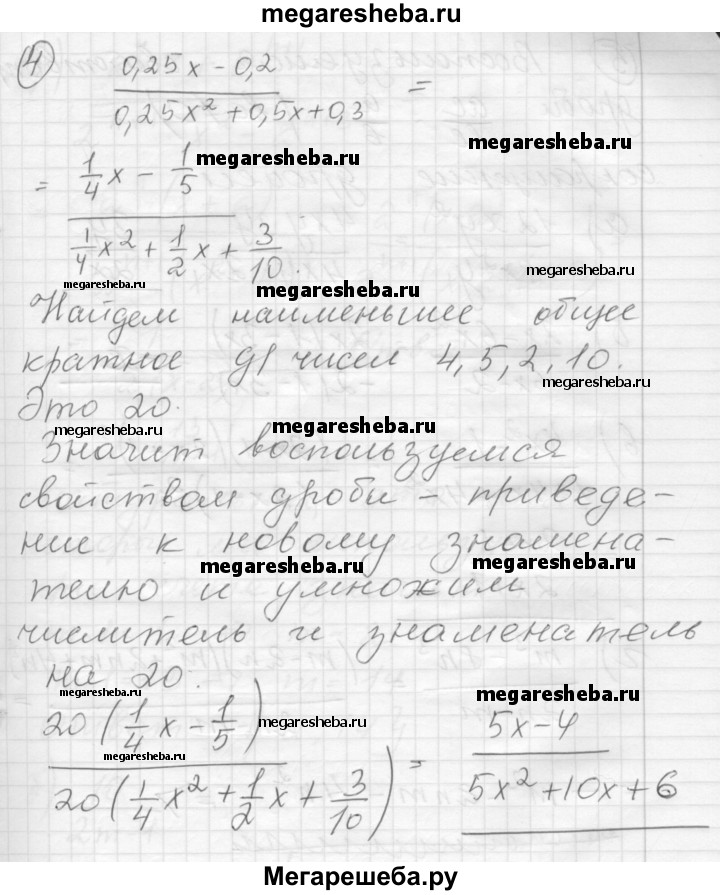 megaresheba.ru
④ (0,25x − 0,2)/(0,25x² + 0,5x + 0,3) =
= (1/4 x − 1/5)/(1/4 x² + 1/2 x + 3/10).
megaresheba.ru
megaresheba.ru
megaresheba.ru
megaresheba.ru
Найдем наименьшее общее
кратное д/ чисел 4, 5, 2, 10.
megaresheba.ru
Это 20.
megaresheba.ru
megaresheba.ru
Значит воспользуемся
свойством дроби – приведе-
ние к новому знамена-
megaresheba.ru
megaresheba.ru
телю и умножим
числитель и знаменатель
на 20.
megaresheba.ru
megaresheba.ru
megaresheba.ru
megaresheba.ru
20(1/4 x − 1/5)/20(1/4 x² + 1/2 x + 3/10) = (5x − 4)/(5x² + 10x + 6)
Мегарешеба.ру